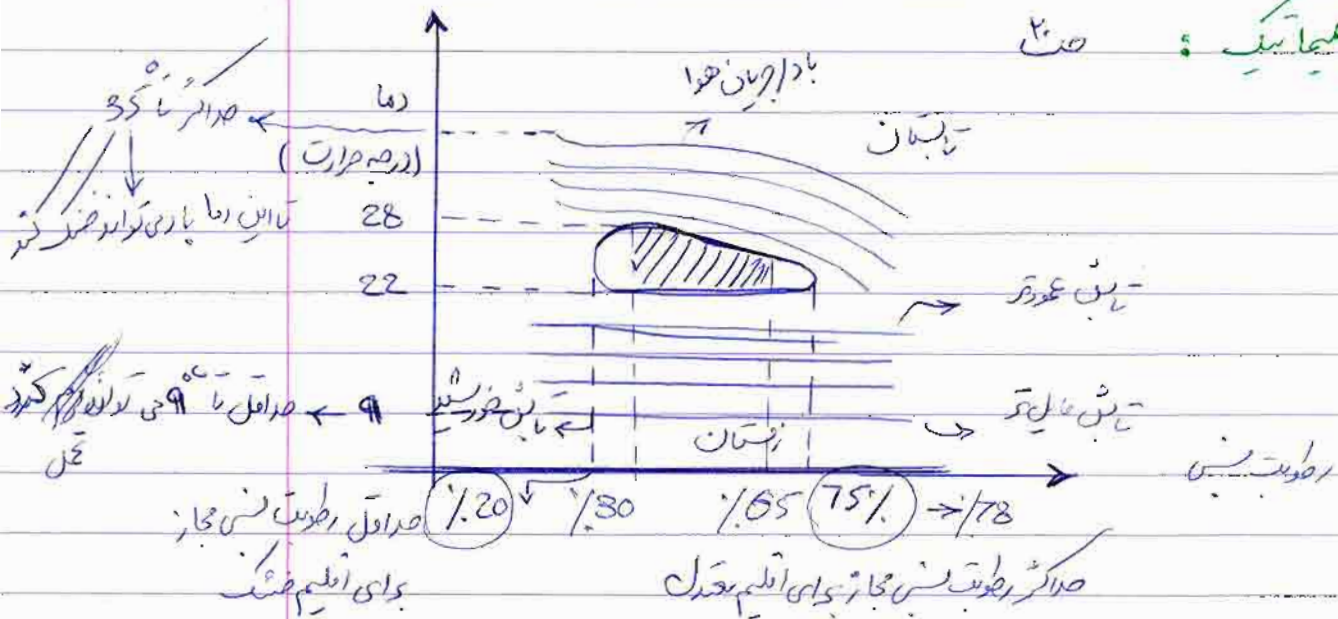 بیوکلیماتیک : ص۲۰
باد/جریان هوا
تابستان
دما
(درجه حرارت)
حداکثر تا 35°
تا این دما باد می‌تواند خنک کند
28
22
تابش عمودتر
تابش مایل‌تر
تابش خورشید
زمستان
9 ← حداقل تا 9°c می‌تواند گرم کند
تحمل
رطوبت نسبی
٪20 ٪30 ٪65 75٪ → ٪78
حداقل رطوبت نسبی مجاز
برای اقلیم خشک
حداکثر رطوبت نسبی مجاز برای اقلیم معتدل